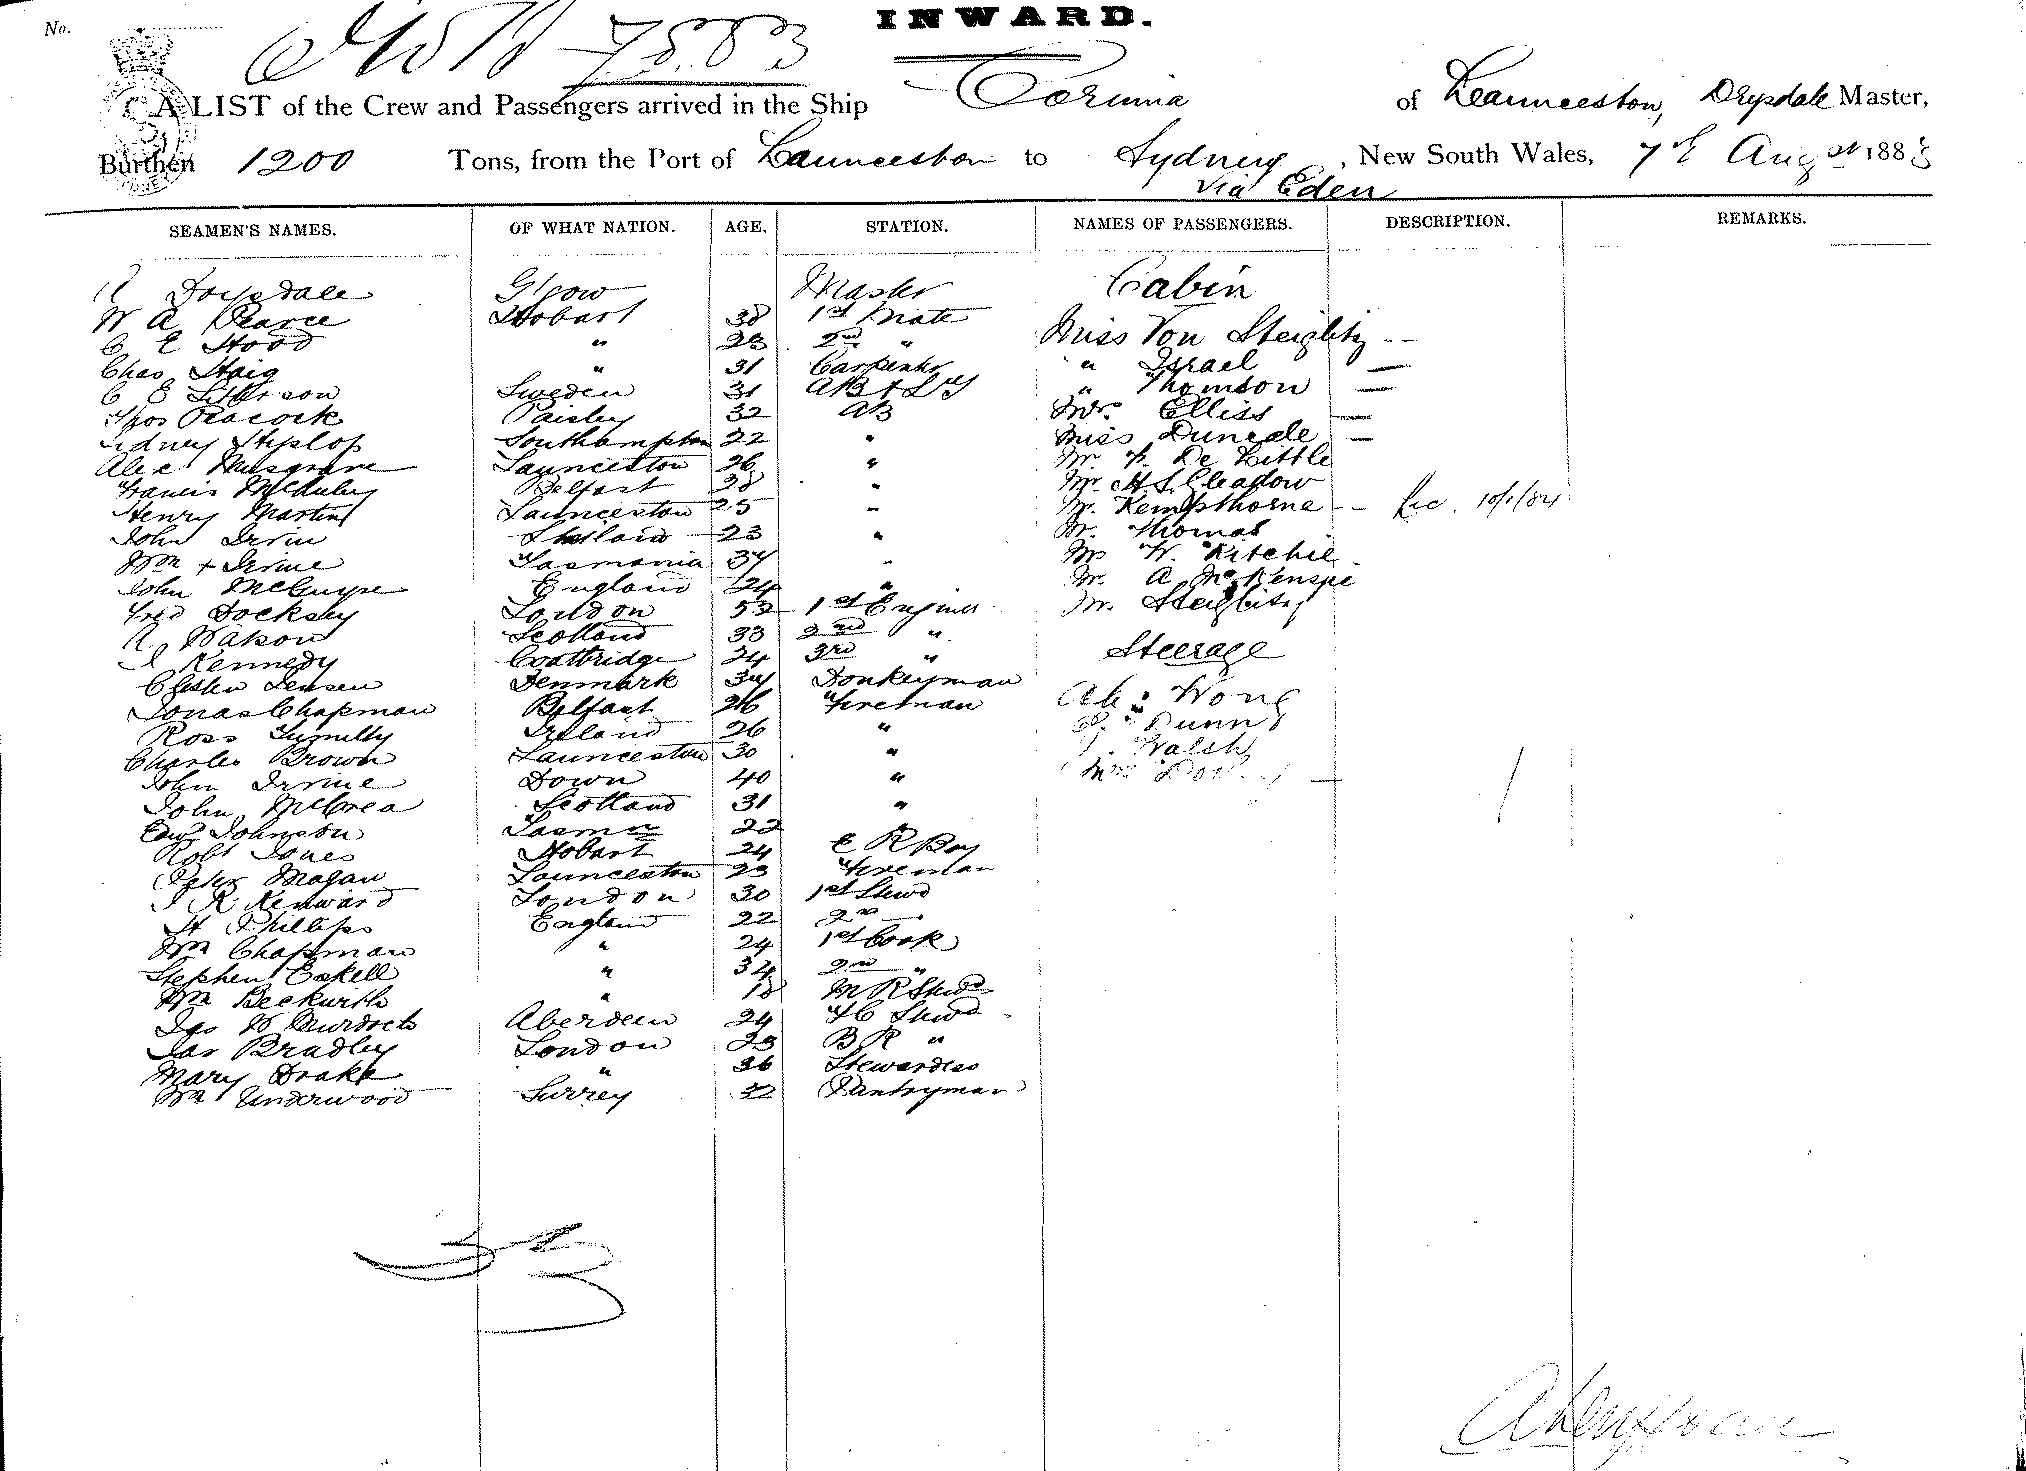 No.
INWARD.
A LIST of the Crew and Passengers arrived in the Ship Corinna of Launceston, Drysdale Master,
Burthen 1200 Tons, from the Port of Launceston to Sydney, New South Wales, 7th Augst 1883
Via Eden
SEAMEN'S NAMES. OF WHAT NATION. AGE. STATION. NAMES OF PASSENGERS. DESCRIPTION. REMARKS.
Drysdale Glgow Master Cabin
W A Pearce Hobart 38 1st Mate Miss Von Steiglitz
C E Hood " 23 2nd "
Chas Haig " 31 Carpenter " Israel
C E Sweden 31 AB & " Thomson
Thos Peacock Paisley 32 AB Mr Elliss
Sidney Southampton 22 " Miss
Alec Musgrave Launceston 26 " Mr De Little
Francis McAuley Belfast 28 " Mr H S Gleadow
Henry Martin Launceston 25 " Mr. Kempthorne 10/1/84
John Irvin 23 " Mr. Thomas
Wm Irvine Tasmania 37 " Mr W. Ritchie
John McGuyre England 24 " Mr. A McKenspie
Fred Docksey London 53 1st Mr. Steiglitz
Watson Scotland 33 2nd "
Kennedy Coatbridge 24 3rd " Steerage
Jensen Denmark 34 Donkeyman Ah Wong
Jonas Chapman Belfast 26 Fireman Dunn
Ross Ireland 26 "
Charles Brown Launceston 30 " Walsh
John Irvine Down 40 " Mrs
John McCrea Scotland 31 "
Edwd Johnston 22 "
Robt Jones Hobart 24 E R Boy
Peter Magan Launceston 23 Fireman
R Kenward London 30 1st Stwd
H Phillips England 22 2nd
Wm Chapman " 24 1st Cook
Stephen Eskell " 34 2nd "
Wm Beckurth " 18 M R Stwd
Jas Murdoch Aberdeen 24 Stwd
Jas Bradley London 23 B R "
Mary Drake " 36 Stewardess
Wm Underwood Surrey 32 Pantryman